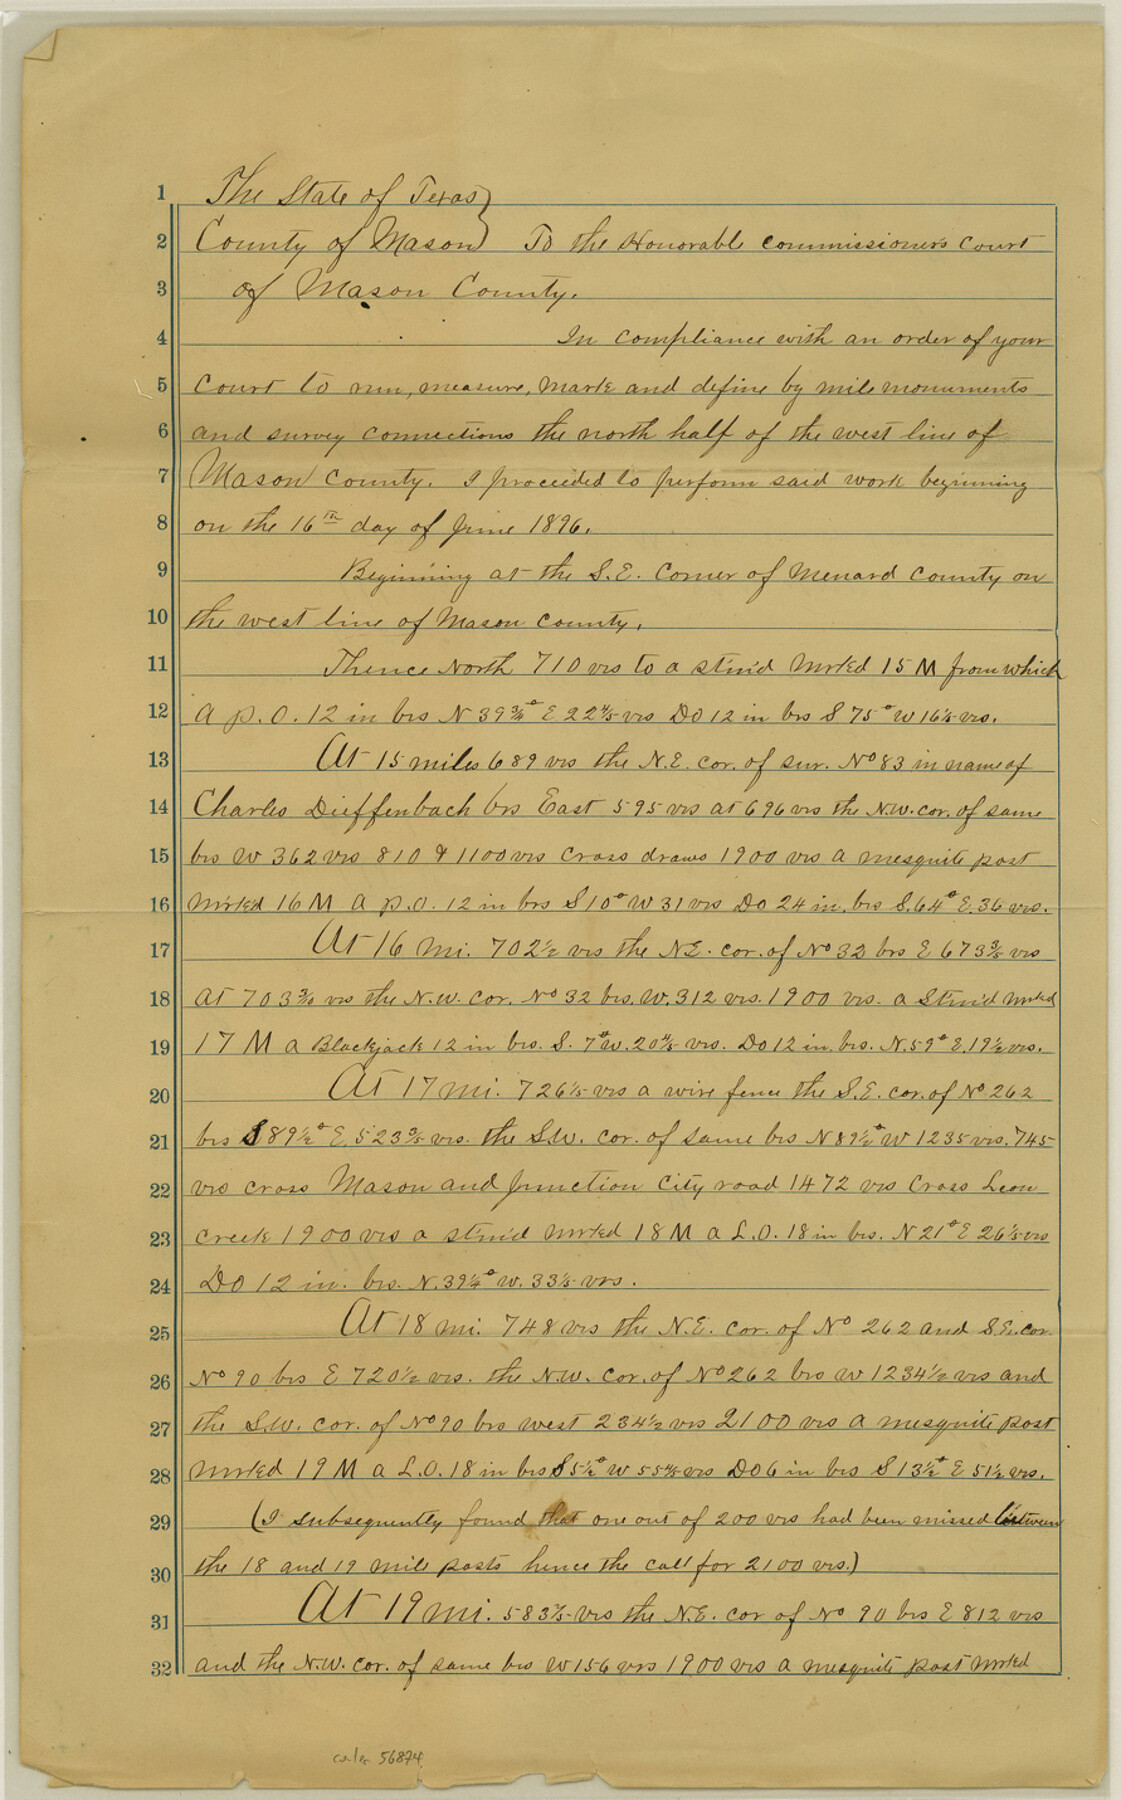 1 The State of Texas }
2 County of Mason } To the Honorable commissioners court
3 of Mason County.
4 In compliance with an order of your
5 Court to run, measure, mark and define by mile monuments
6 and survey connections the north half of the west line of
7 Mason County. I proceeded to perform said work beginning
8 on the 16th day of June 1896.
9 Beginning at the S.E. Corner of Menard County on
10 the west line of Mason County.
11 Thence North 710 vrs to a stm'd Mrked 15 M from which
12 a P.O. 12 in brs N 39¾° E 22⅘ vrs Do 12 in brs S 75° W 16⅕ vrs.
13 At 15 miles 689 vrs the N.E. cor. of sur. No 83 in name of
14 Charles Dieffenbach brs East 595 vrs at 696 vrs the N.W. cor. of same
15 brs W 362 vrs 810 & 1100 vrs Cross draws 1900 vrs a mesquite post
16 Mrked 16 M a P.O. 12 in brs S 10° W 31 vrs Do 24 in. brs S. 64° E. 36 vrs.
17 At 16 mi. 702½ vrs the N.E. cor. of No 32 brs E 673⅗ vrs
18 At 703 3/10 vrs the N.W. cor. No 32 brs. W. 312 vrs. 1900 vrs. a Stm'd Mrked
19 17 M a Blackjack 12 in brs. S. 7° W. 20⅘ vrs. Do 12 in. brs. N. 59° E. 19½ vrs.
20 At 17 mi. 726⅕ vrs a wire fence the S.E. cor. of No 262
21 brs S 89½° E 523⅗ vrs. the S.W. cor. of same brs N 89½° W 1235 vrs. 745
22 vrs cross Mason and Junction City road 1472 vrs Cross Leon
23 Creek 1900 vrs a stm'd Mrked 18 M a L.O. 18 in brs. N 21° E 26⅕ vrs
24 Do 12 in. brs. N. 39¼° W. 33⅕ vrs.
25 At 18 mi. 748 vrs the N.E. cor. of No 262 and S.E. cor.
26 No 90 brs E 720½ vrs. the N.W. cor. of No 262 brs W 1234½ vrs and
27 the S.W. cor. of No 90 brs west 234½ vrs 2100 vrs a mesquite post
28 Mrked 19 M a L.O. 18 in brs S 5½° W 55⅘ vrs Do 6 in brs S 13½° E 51½ vrs.
29 (I subsequently found that one out of 200 vrs had been missed between
30 the 18 and 19 mile posts hence the call for 2100 vrs.)
31 At 19 mi. 583⅖ vrs the N.E. cor of No 90 brs E 812 vrs
32 and the N.W. cor. of same brs W 156 vrs 1900 vrs a mesquite post Mrked
56874